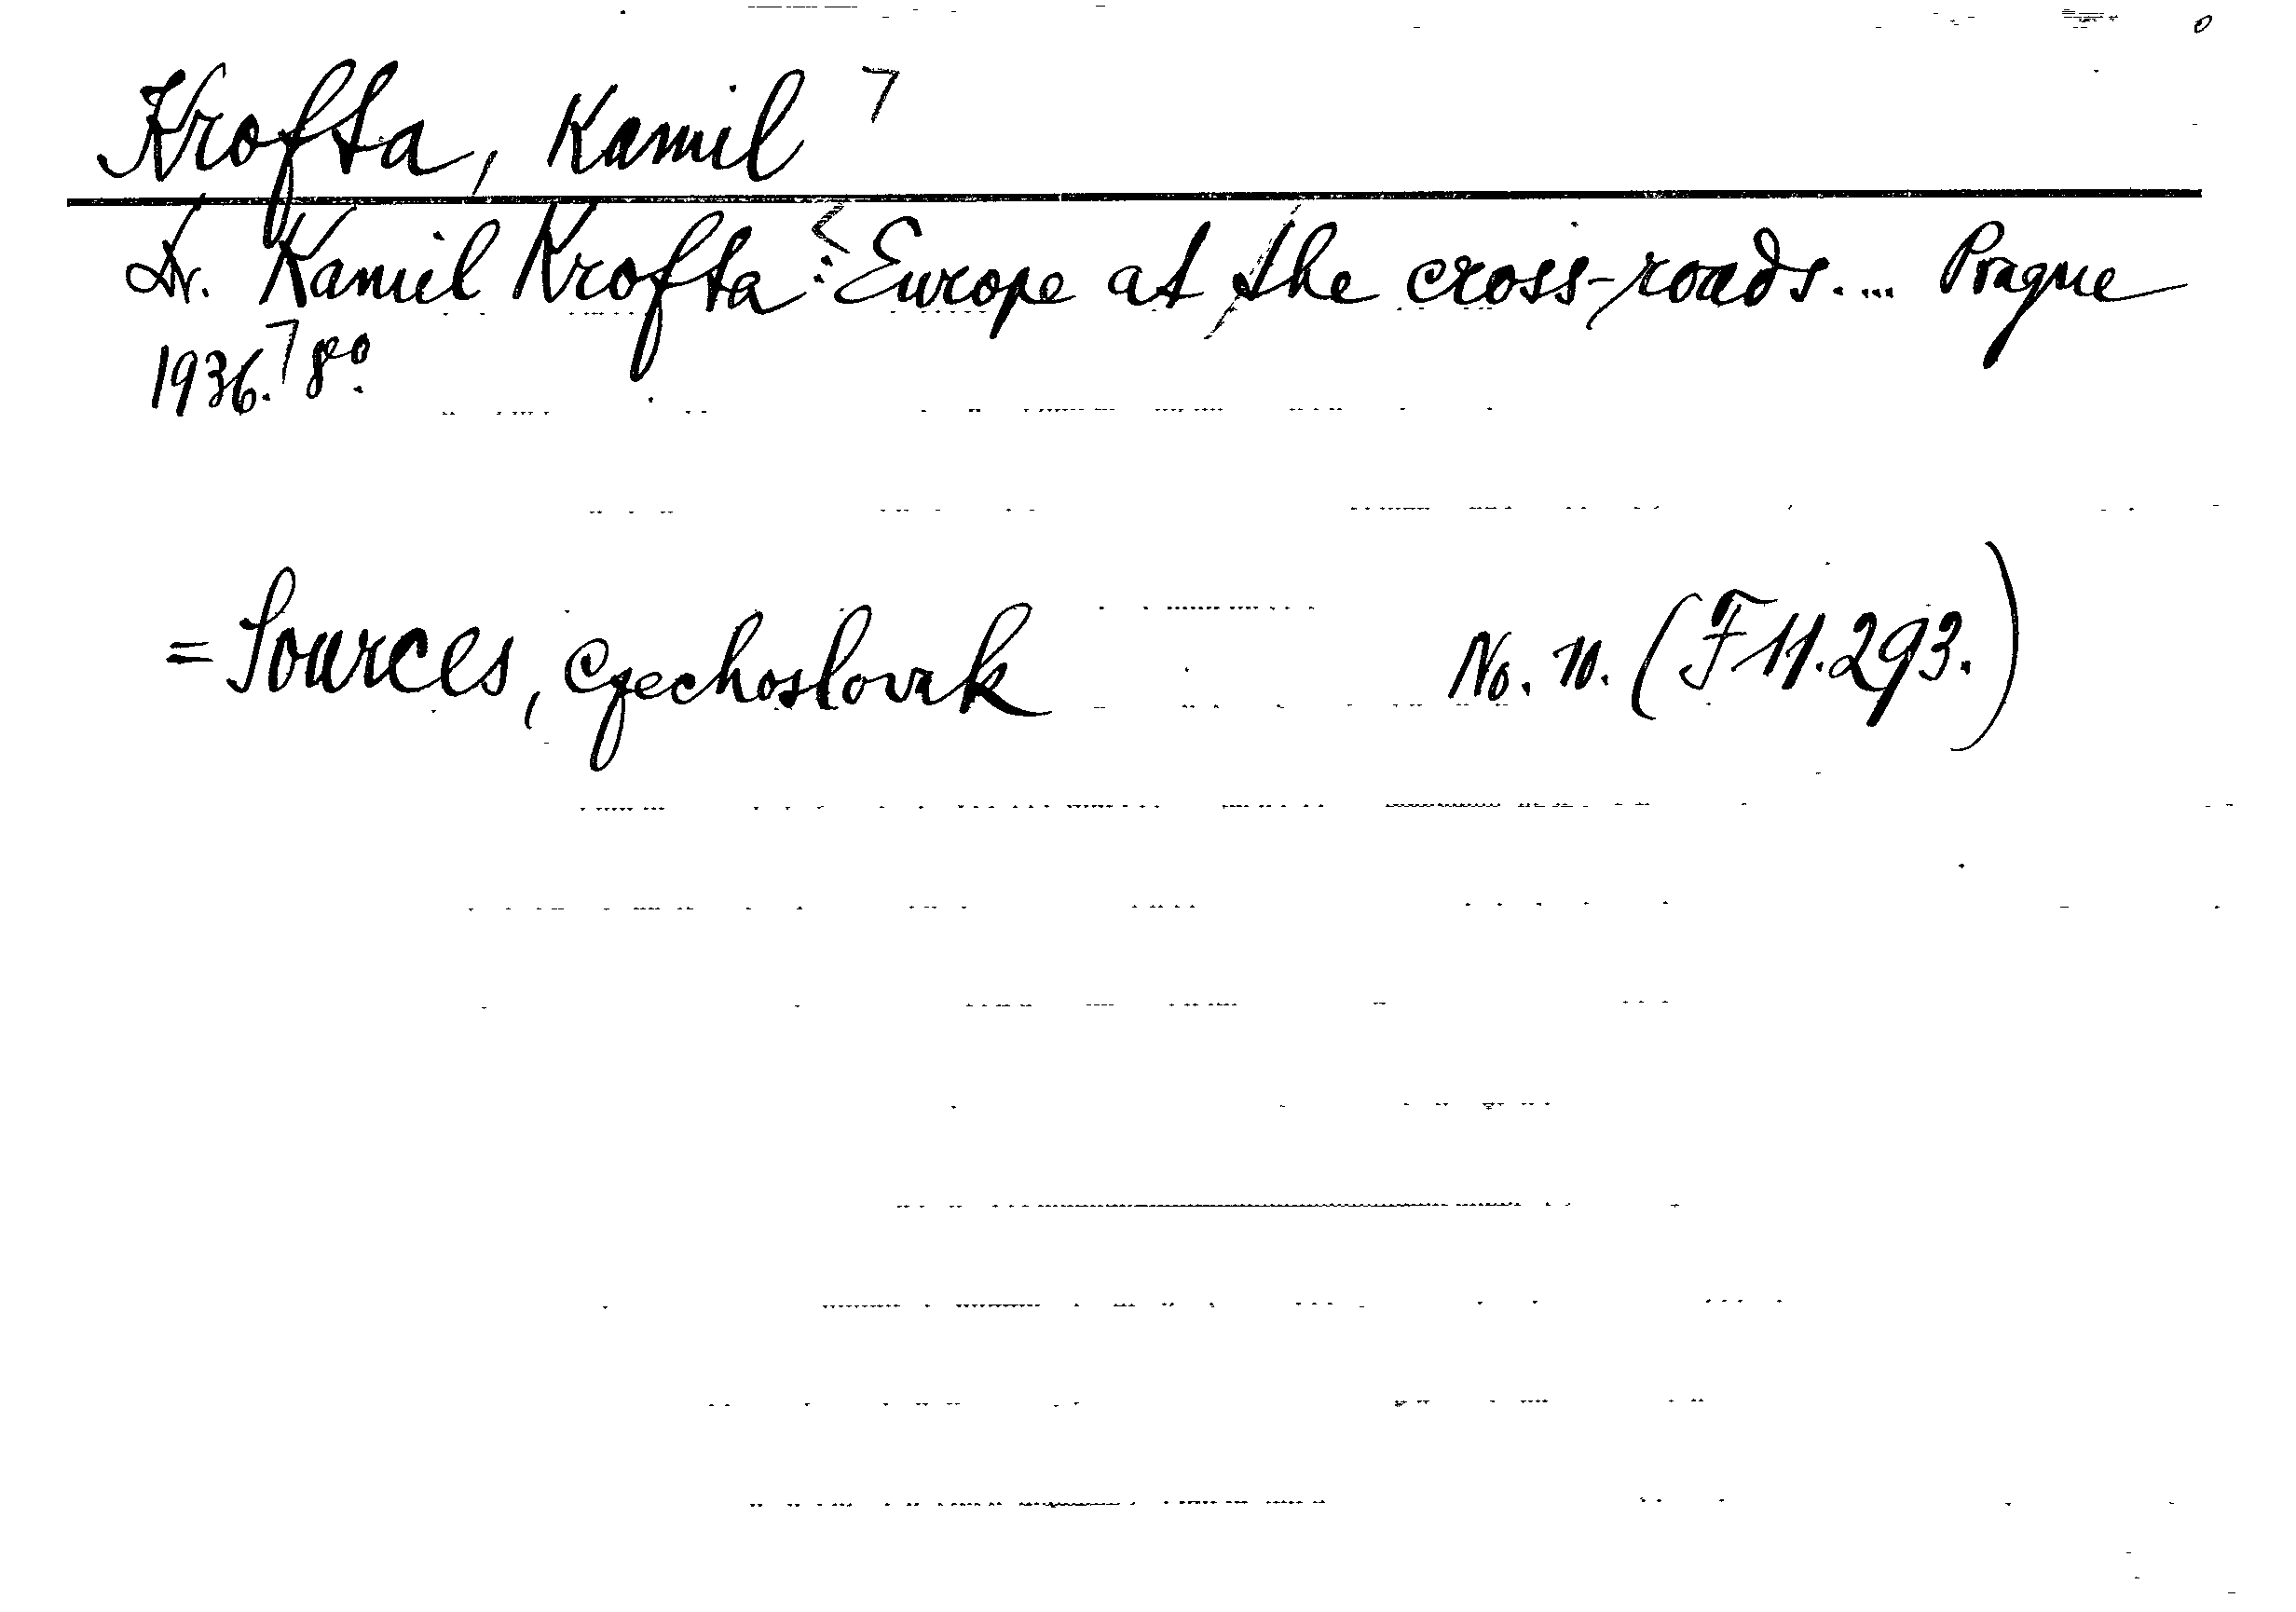 Krofta, Kamil
Dr. Kamil Krofta: Europe at the cross-roads. ... Prague
1936. 8o.
= Sources, Czechoslovak No. 10. (F 11.293.)